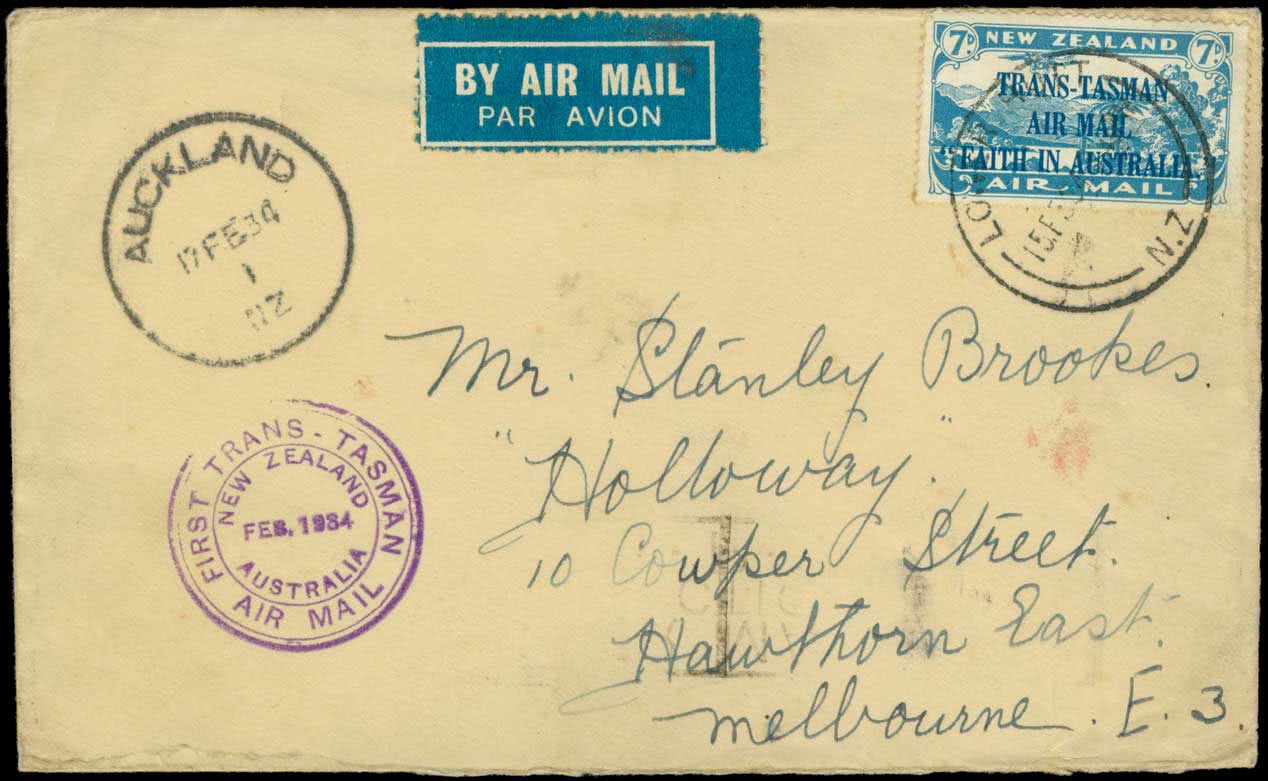 BY AIR MAIL
PAR AVION
7D NEW ZEALAND 7D
TRANS-TASMAN
AIR MAIL
"FAITH IN AUSTRALIA."
AIR - MAIL
LOWER HUTT
15 FE 34
N.Z
AUCKLAND
17 FE 34
1
NZ
FIRST TRANS-TASMAN
AIR MAIL
NEW ZEALAND
FEB. 1934
AUSTRALIA
Mr. Stanley Brookes.
"Holloway".
10 Cowper Street.
Hawthorn East.
Melbourne. E. 3.